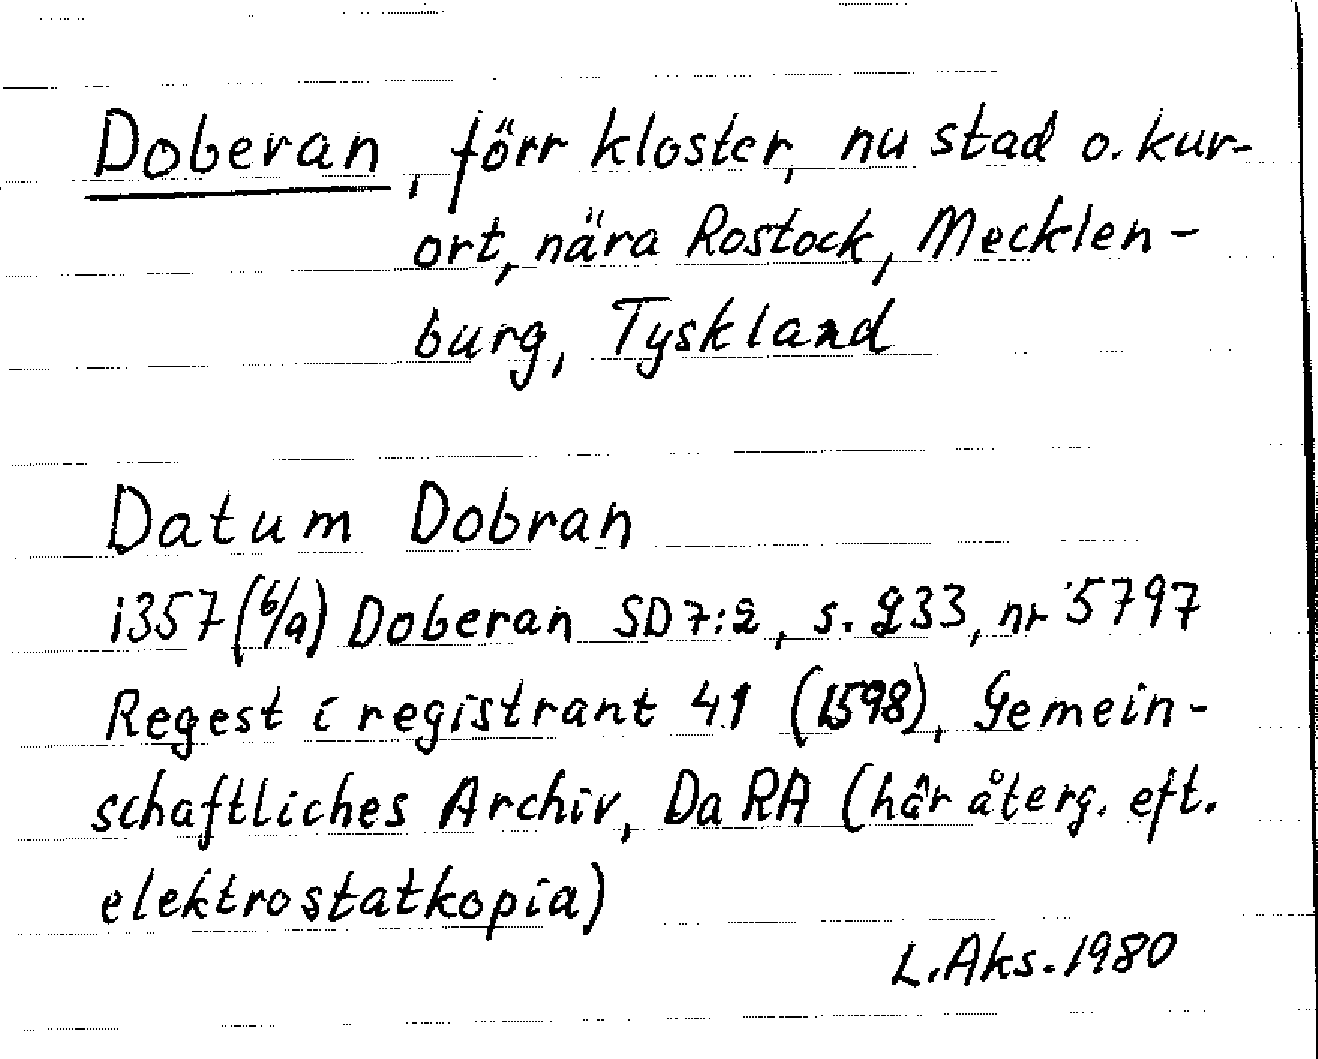 Doberan, förr kloster, nu stad o. kur-
ort, nära Rostock, Mecklen-
burg, Tyskland
Datum Dobran
1357 (6/9) Doberan SD 7:2, s. 233, nr 5797
Regest i registrant 41 (1598), Gemein-
schaftliches Archiv, Da RA (här återg. eft.
elektrostatkopia)
L. Aks. 1980